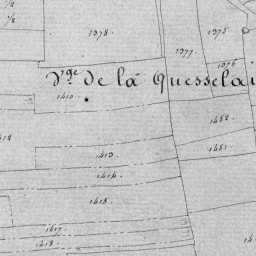 1/2
1/2
1378.
1375.
1377.
1376
Vge de la Quesselai
1410.
1452
1413.
1451.
1414.
1415.
1417
1418